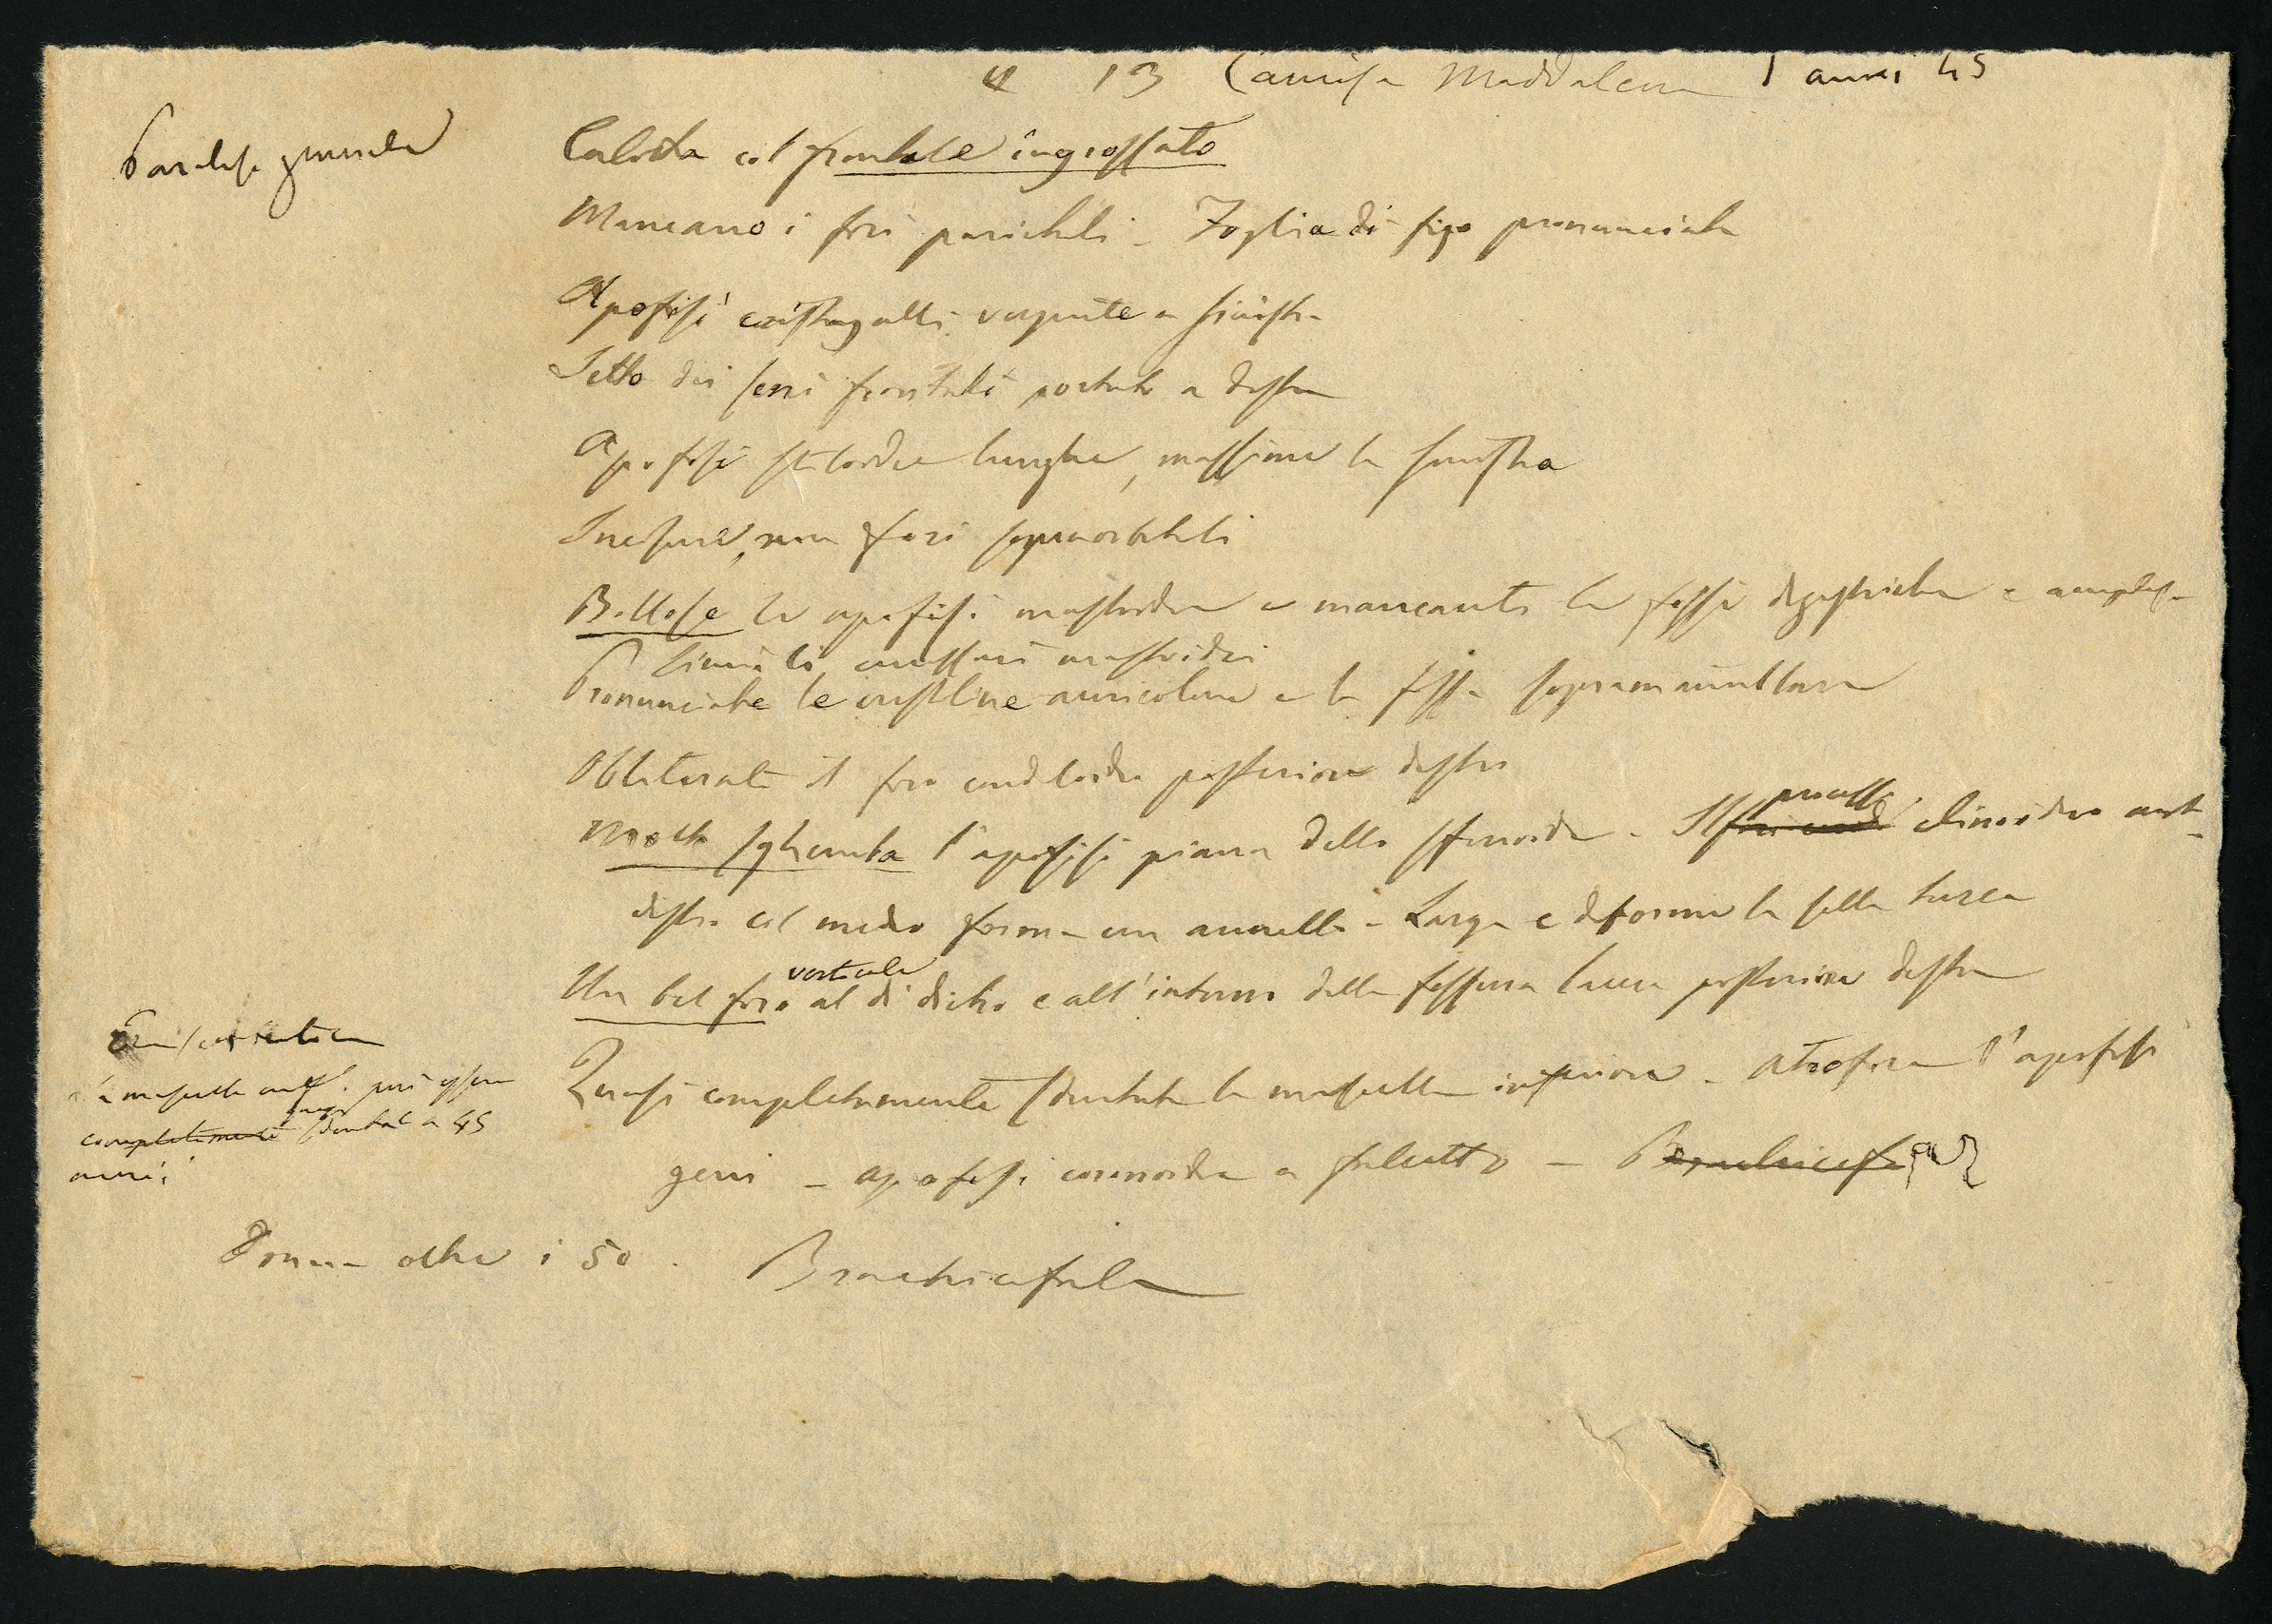 4 13 Camisa Maddalena anni 45
Paralisi generale
Calotta col frontale ingrossato
Mancano i fori parietali - Foglia di fico pronunciata
Apofisi cristagalli vergente a sinistra
Setto dei seni frontali portato a destra
Apofisi stiloidee lunghe, massime la sinistra
Incisure, non fori sopraorbitali
Bollose le apofisi mastoidee e mancanti le fosse digastriche e
Pronunciate le cristoline auricolari e la fossa sopramamillare
Obliterato il foro condiloideo posteriore destro
Molto sghemba l'apofisi piana dello sfenoide - Il processo clinoideo ant
destro col medio forma un anello - Larga e deforme la sella turca
Un bel foro verticale al di dietro e all'interno della fessura lacera posteriore destra
Quasi completamente sdentata la mascella inferiore - Atrofica l'apofisi
geni - apofisi coronoidea a falcetto -
La mascella può essere
completamente quasi sdentata a 45
anni?
Donna oltre i 50.
Brachicefala